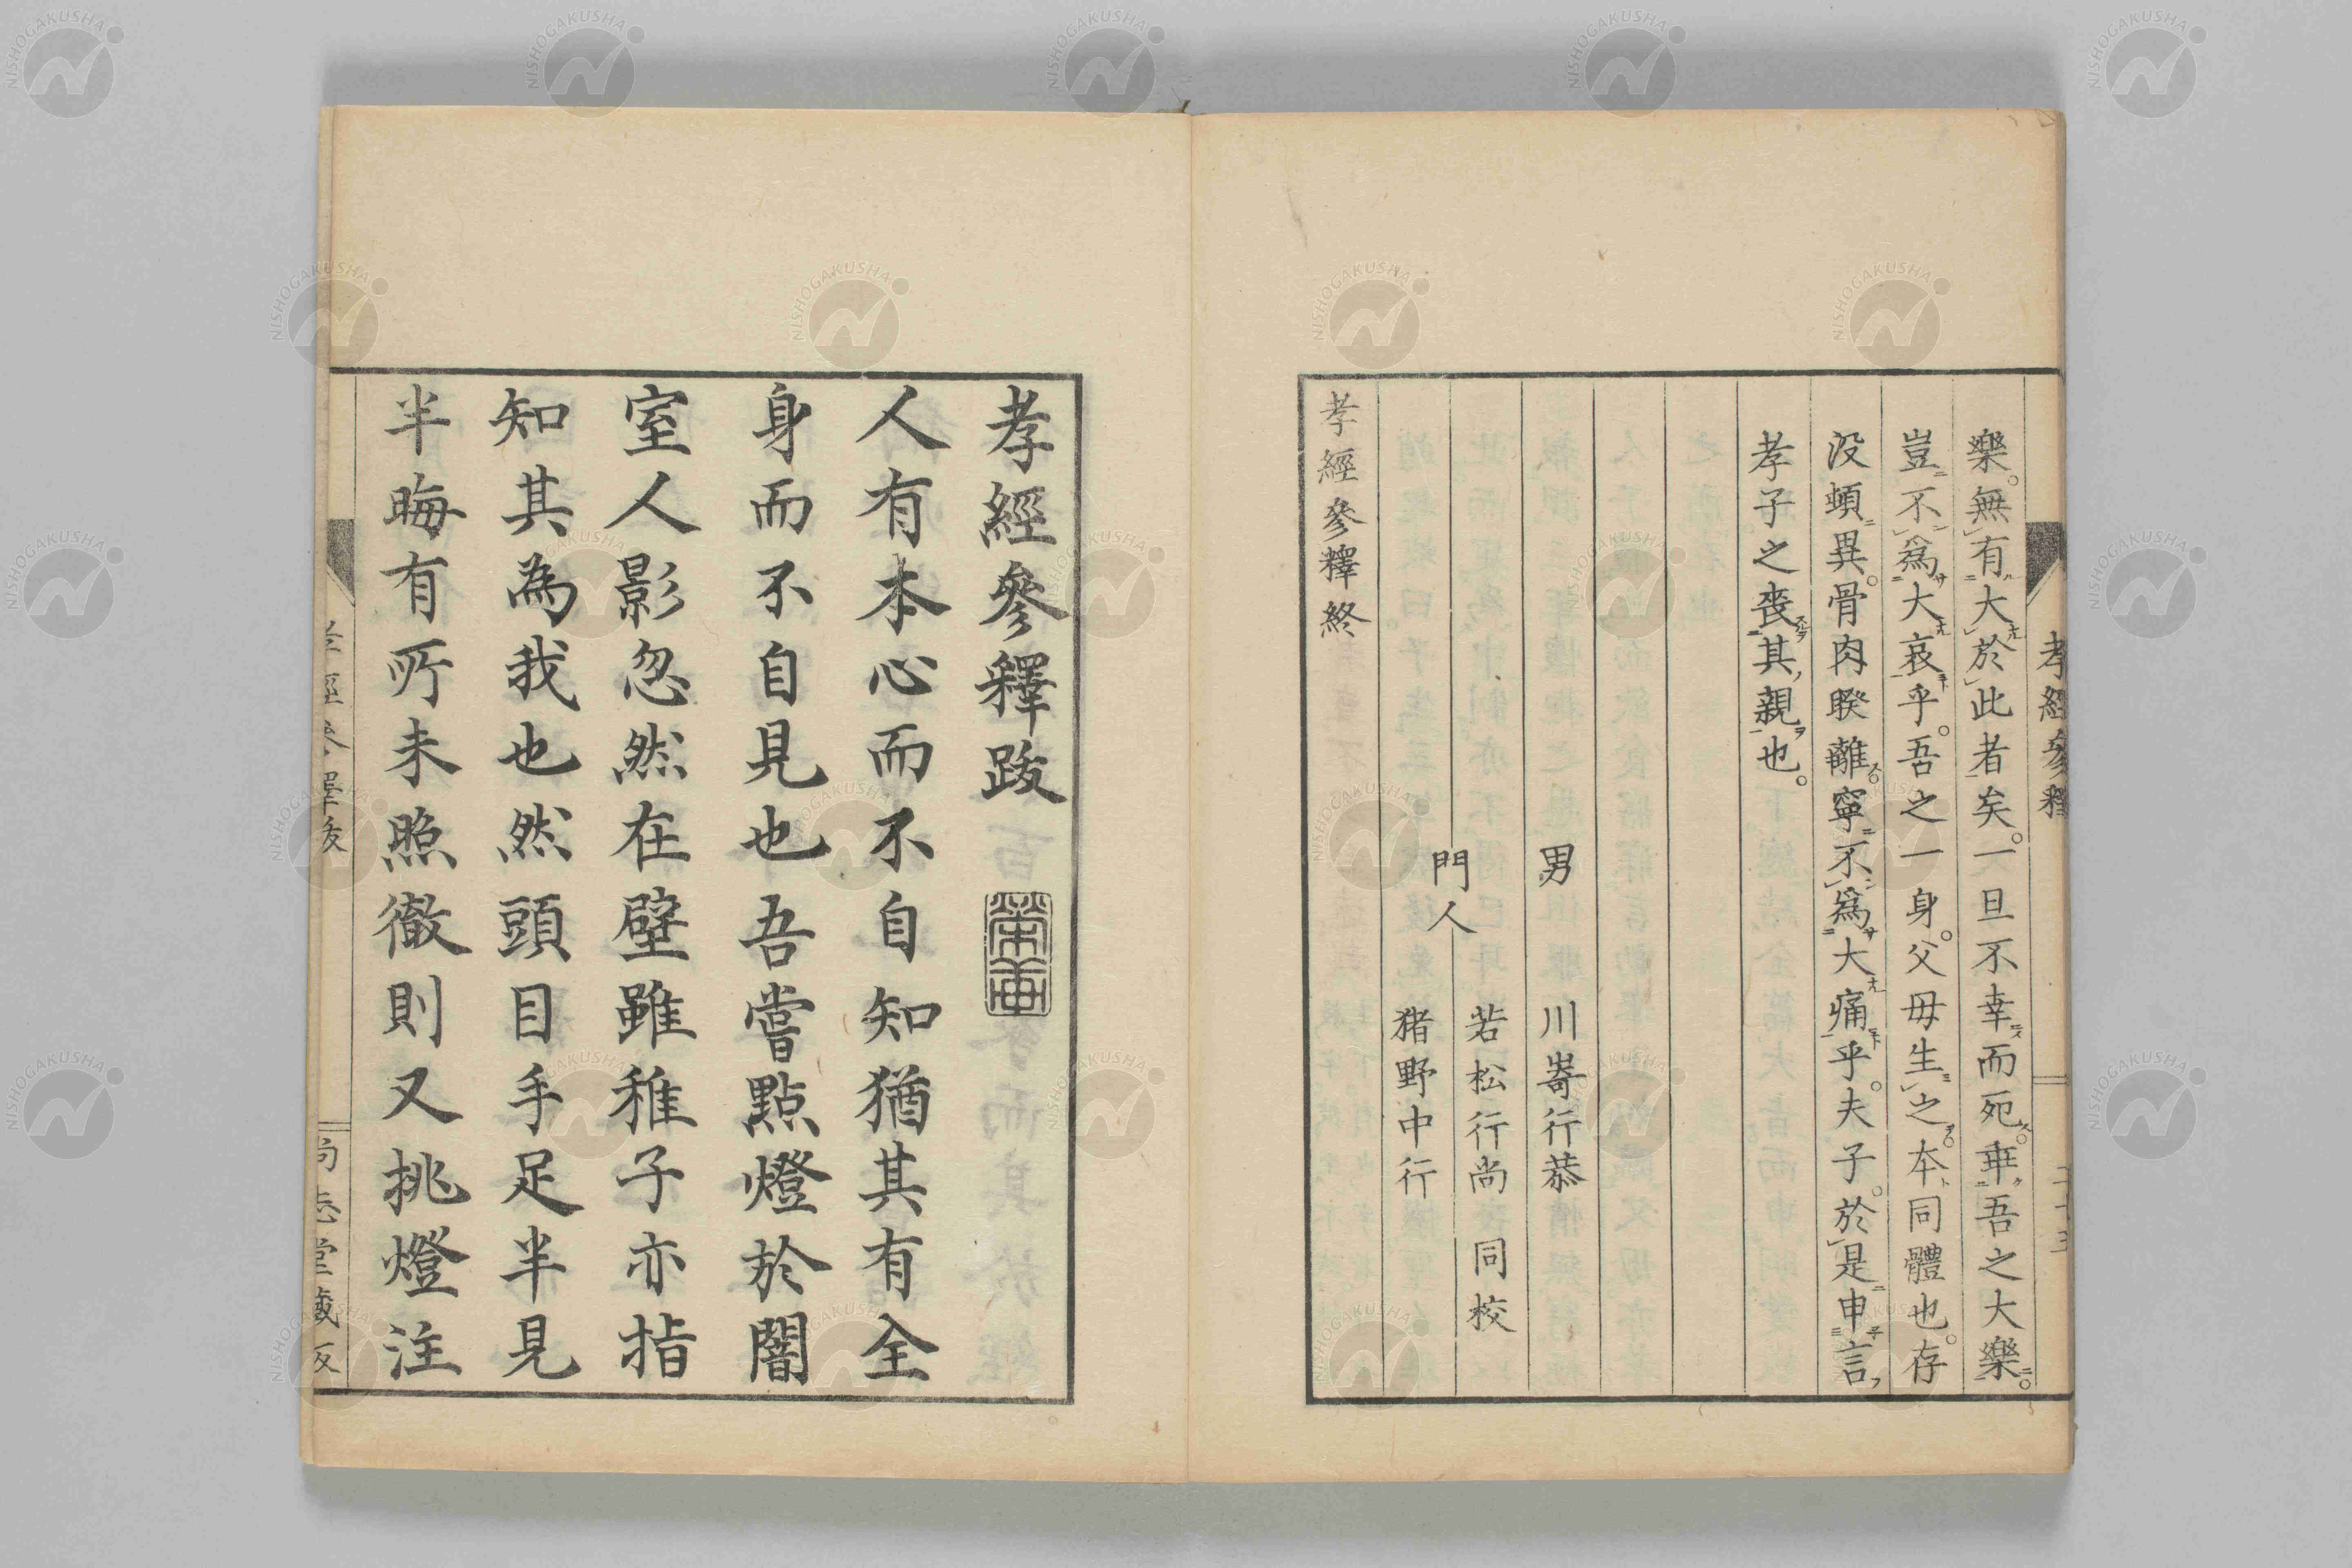 樂。無有大於此者矣。一旦不幸而死。棄吾之大樂。
豈不爲大哀乎。吾之一身。父母生之。本同體也。存
没頓異。骨肉睽離。寧不爲大痛乎。夫子。於是申言
孝子之喪其親也。
男 川嵜行恭
門人 若松行尚 同校
猪野中行
孝經參釋終
孝經參釋跋
人有本心而不自知猶其有全
身而不自見也吾嘗點燈於闇
室人影忽然在壁雖稚子亦指
知其為我也然頭目手足半見
半晦有所未照徹則又挑燈注
孝經參釋跋
尚志堂藏
孝經參釋
NISHOGAKUSHA